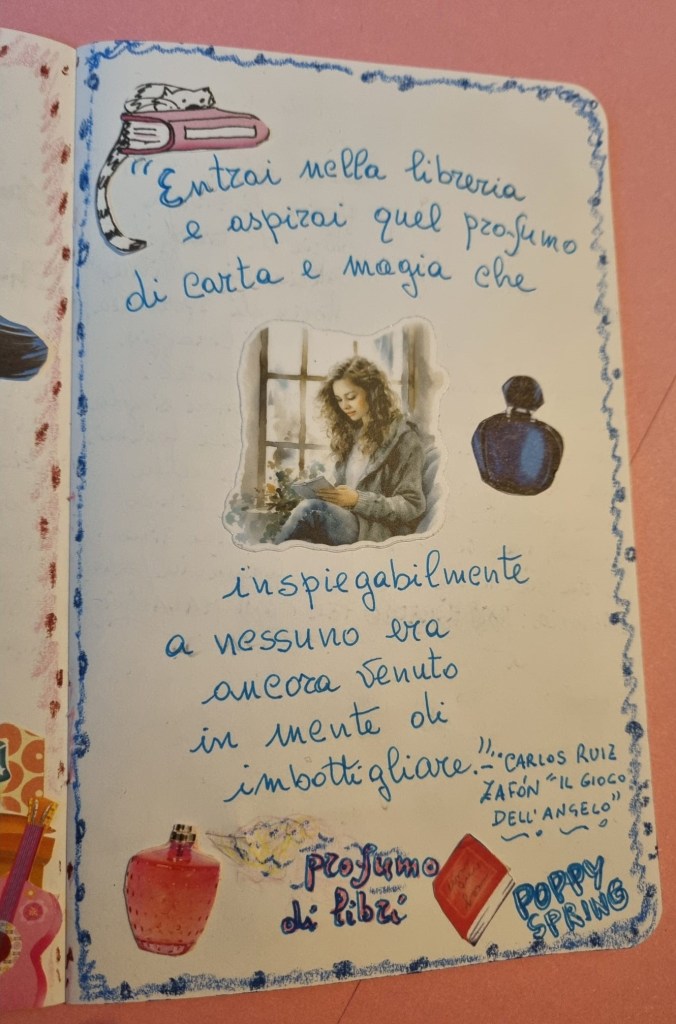 "Entrai nella libreria
e aspirai quel profumo
di carta e magia che
inspiegabilmente
a nessuno era
ancora venuto
in mente di
imbottigliare."
CARLOS RUIZ
ZAFÓN "IL GIOCO
DELL'ANGELO"
profumo
di libri
POPPY
SPRING